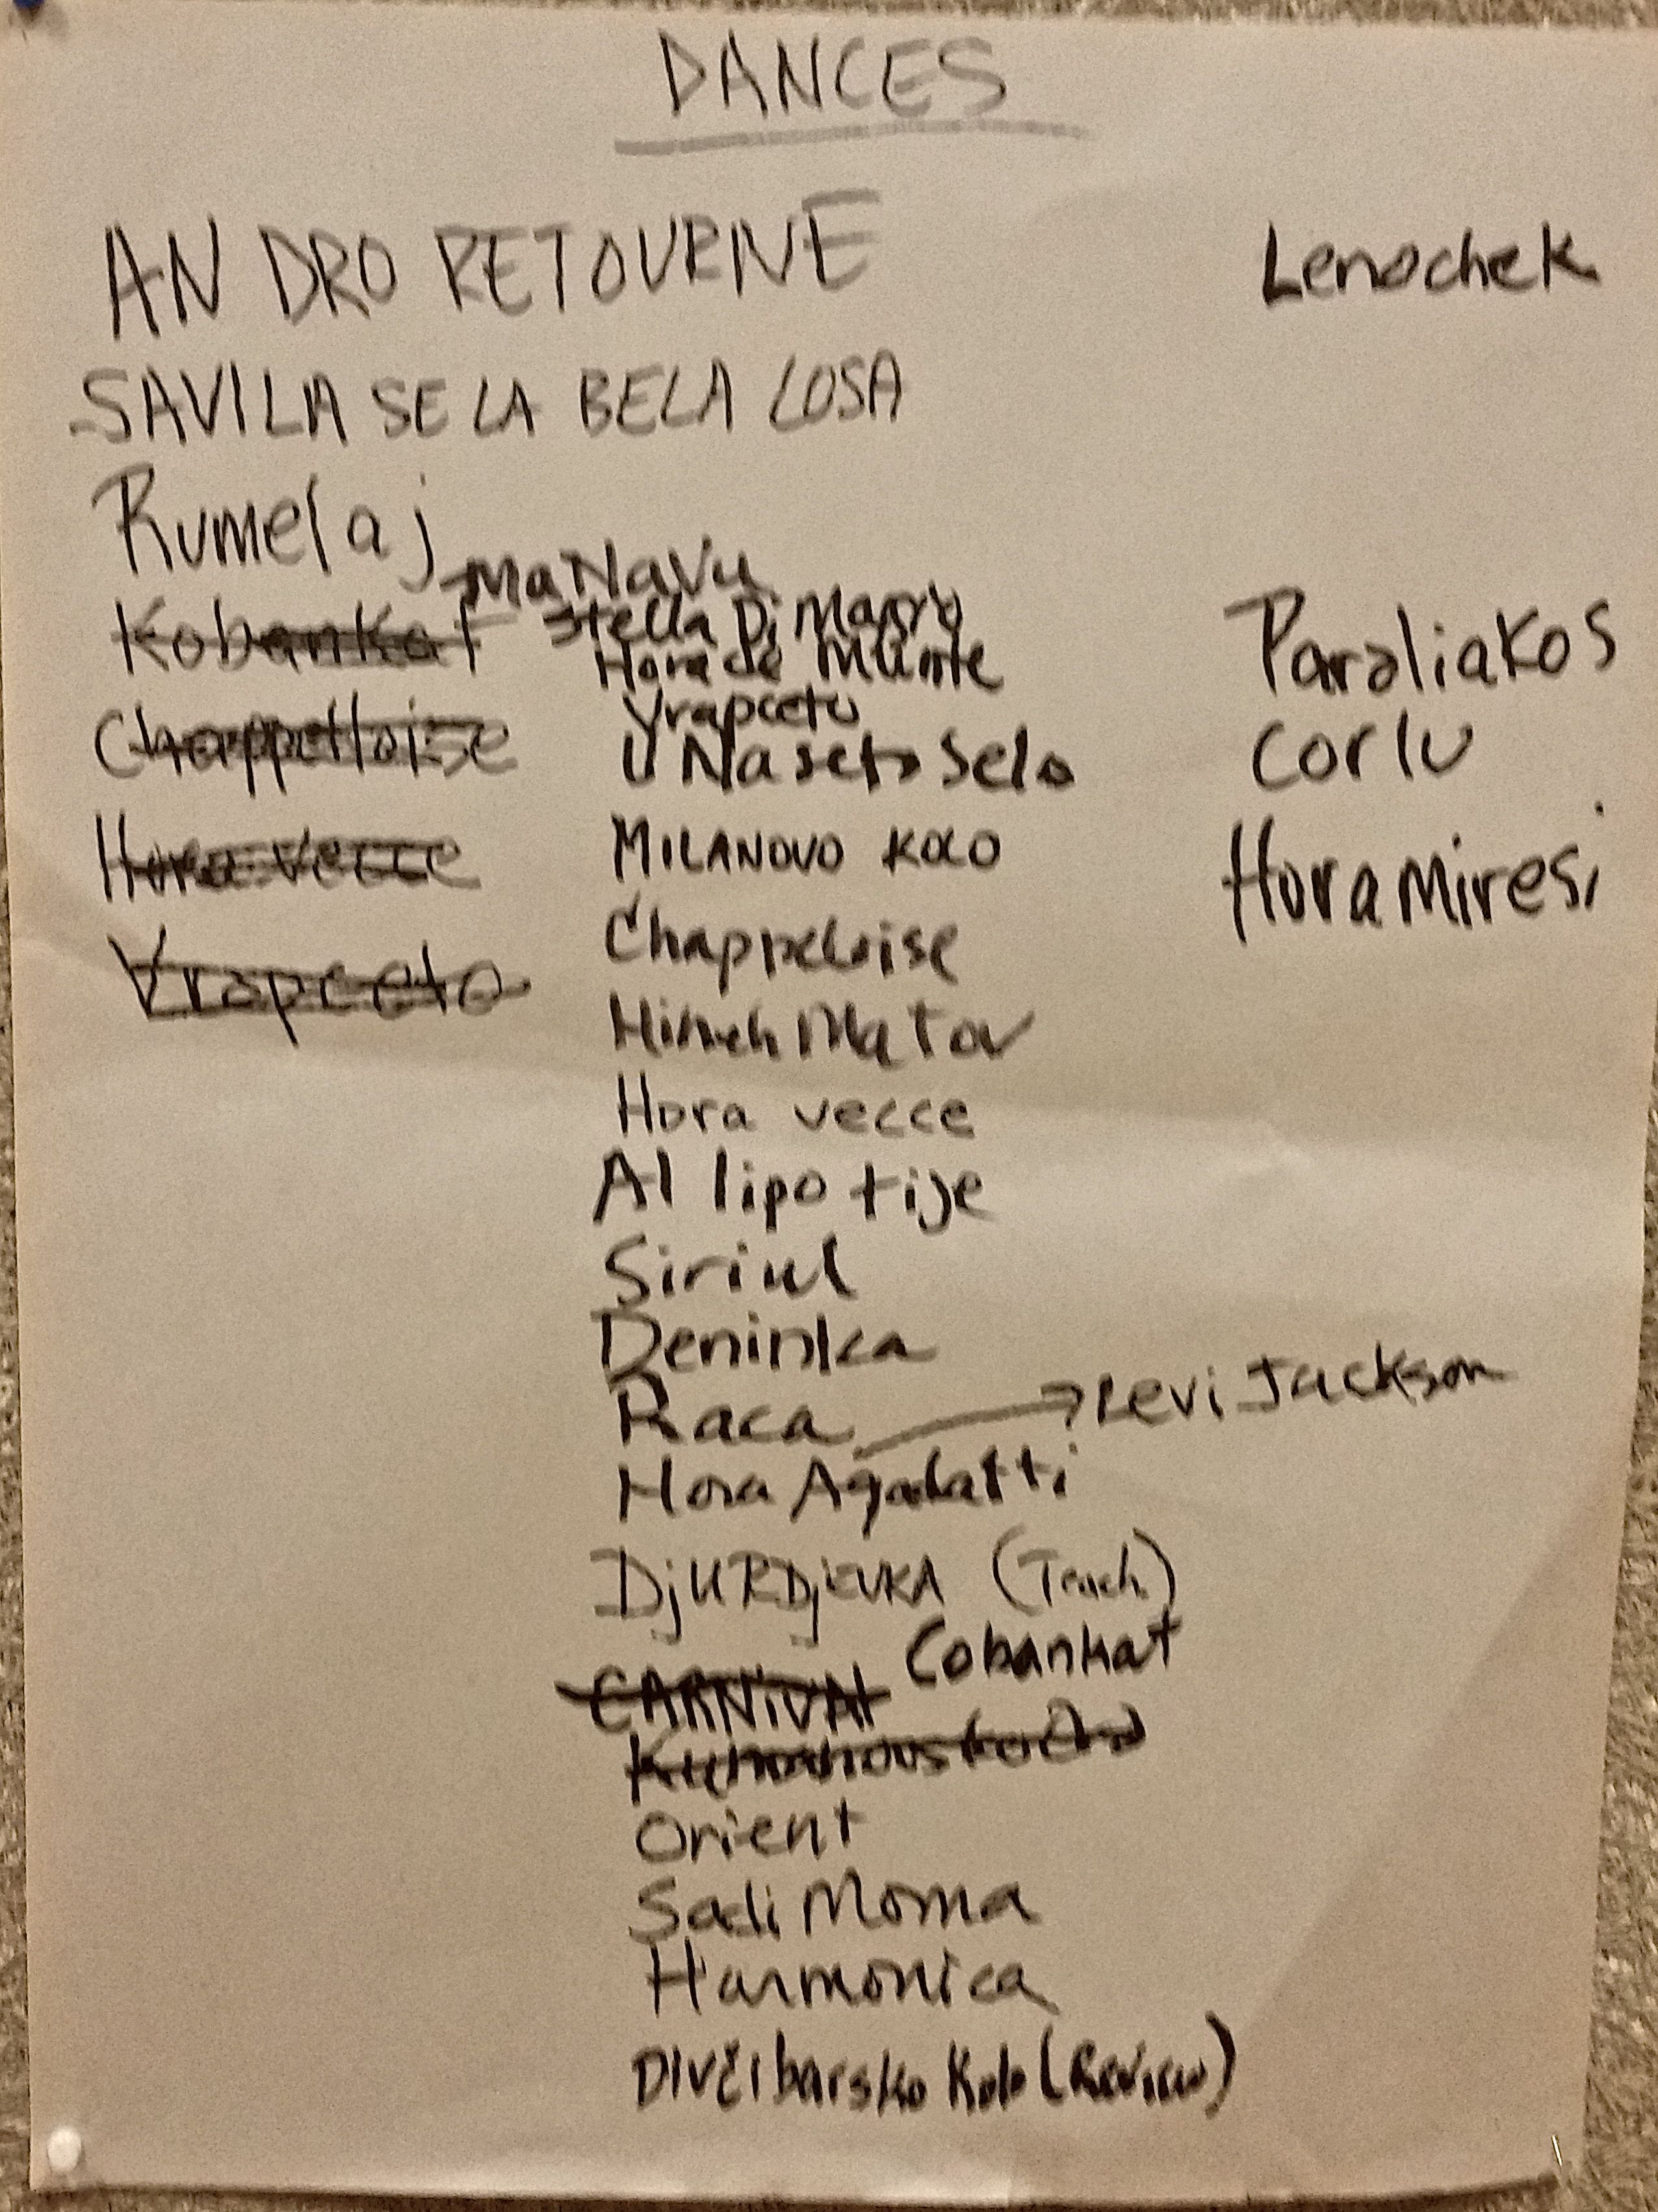 DANCES
AN DRO RETOURNE
Lenochek
SAVILA SE LA BELA LOSA
Rumelaj
Ma Navu
Kobankat
Stella Di Mario
Hora de Munte
Vrapceto
Chappelloise
U Naseto Selo
Hora vecce
MILANOVO KOLO
Vrapceto
Chappeloise
Hineh Ma Tov
Hora vecce
Al lipo tije
Siriul
Deninka
Raca → Levi Jackson
Hora Agadatti
DjURDjEVKA (Teach)
CARNIVAL Cobankat
Orient
Sadi Moma
Harmonica
Divčibarsko Kolo (Review)
Paraliakos
Corlu
Hora Miresi